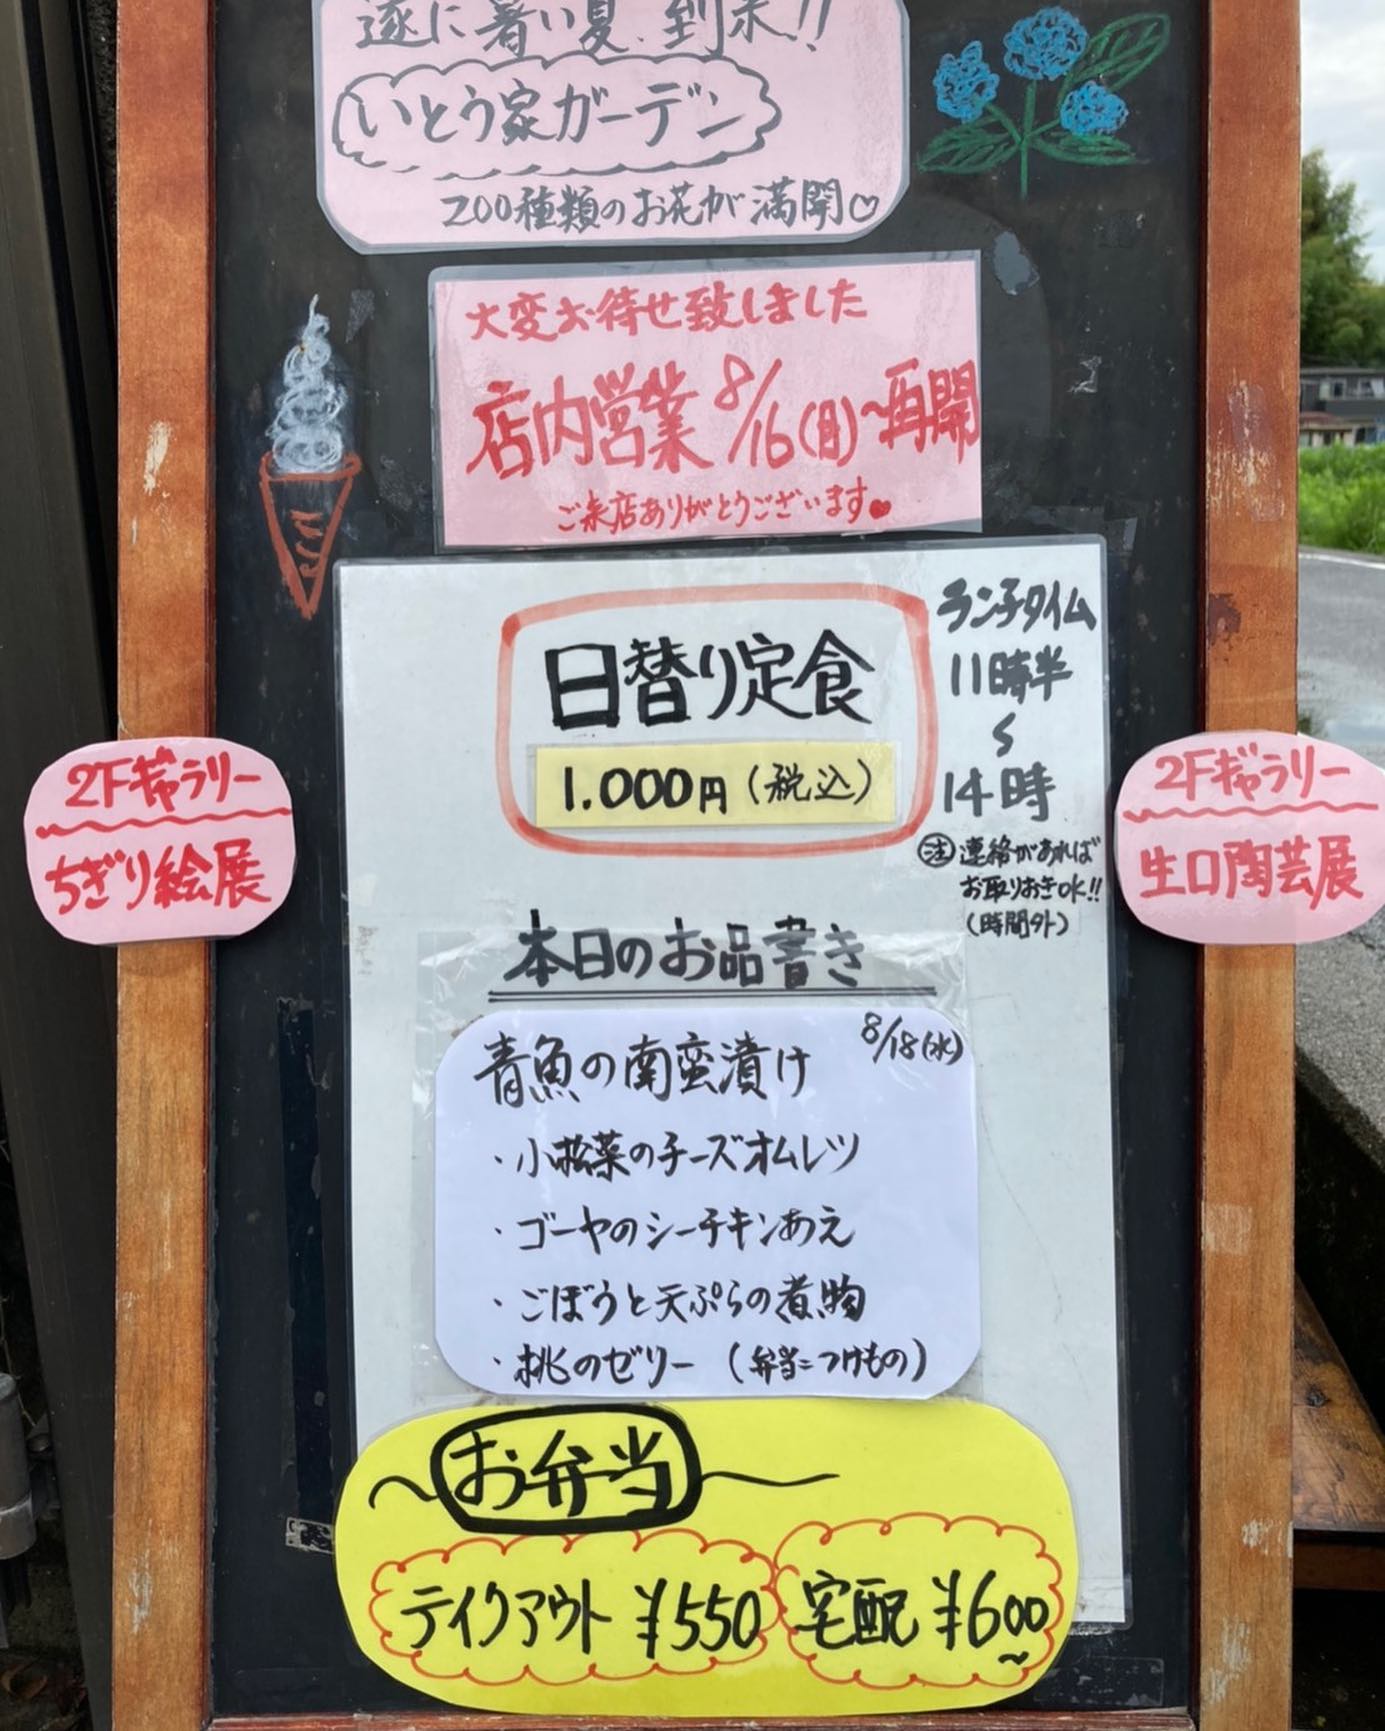 遂に暑い夏、到来!!
いとう家ガーデン
200種類のお花が満開♡
大変お待せ致しました
店内営業8/16(日)~再開
ご来店ありがとうございます♥
日替り定食
1.000円(税込)
ランチタイム
11時半
~
14時
㊟連絡があれば
お取りおきOK!!
(時間外)
2Fギャラリー
ちぎり絵展
2Fギャラリー
生口陶芸展
本日のお品書き
8/18(水)
青魚の南蛮漬け
・小松菜のチーズオムレツ
・ゴーヤのシーチキンあえ
・ごぼうと天ぷらの煮物
・桃のゼリー(弁当につけもの)
~お弁当~
テイクアウト ¥550
宅配 ¥600~